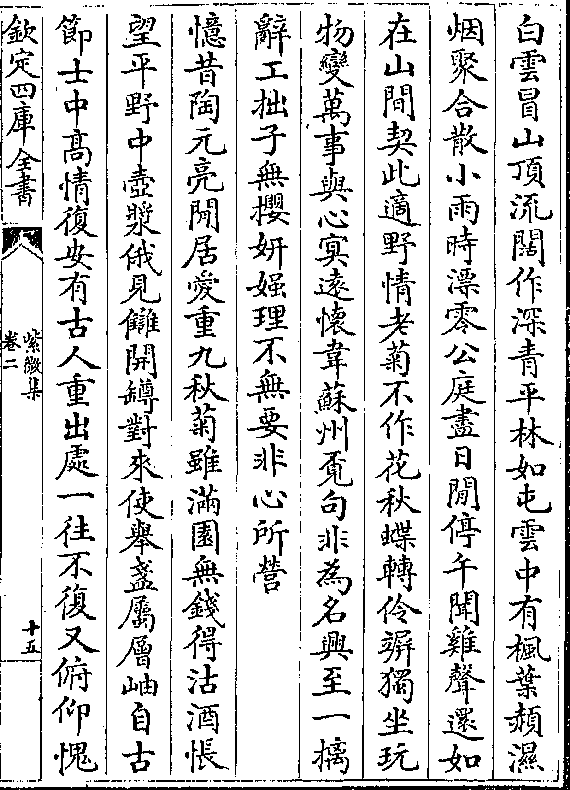 白雲冒山頂流闊作深青平林如屯雲中有楓葉頳濕
烟聚合散小雨時漂零公庭盡日閒停午聞雞聲還如
在山間契此適野情老菊不作花秋蝶轉伶竮獨坐玩
物變萬事與心㝠遠懷韋蘇州覔句非為名興至一摛
辭工拙子無攖妍媸理不無要非心所營
憶昔陶元亮閒居愛重九秋菊雖滿園無錢得沽酒悵
望平野中壺漿俄見售開罇對來使舉盞屬層岫自古
節士中髙情復安有古人重出處一往不復又俯仰愧
欽定四庫全書
紫微集
卷二
十五